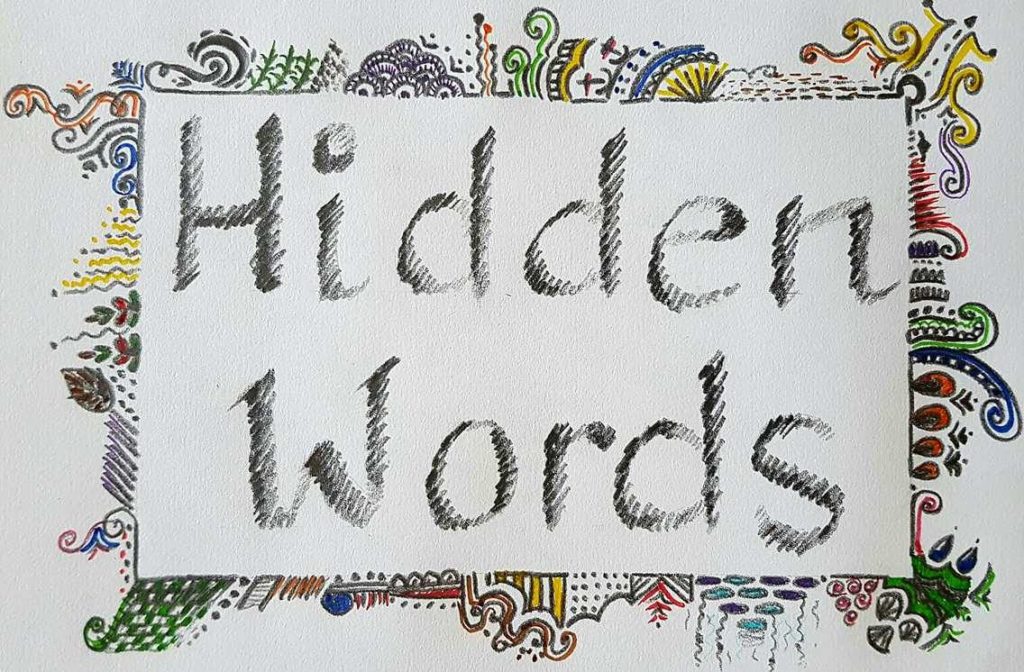 Hidden
Words